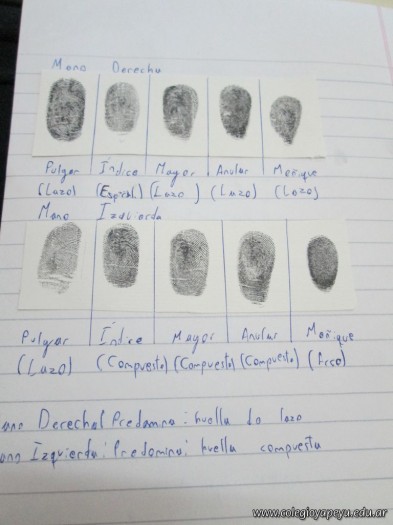 Mano Derecha
Pulgar Índice Mayor Anular Meñique
(Lazo) (Espiral) (Lazo) (Lazo) (Lazo)
Mano Izquierda
Pulgar Índice Mayor Anular Meñique
(Lazo) (Compuesto) (Compuesto) (Compuesto) (Arco)
ano Derecha: Predomina: huella do lazo
ano Izquierda: Predomina: huella compuesta
www.colegioyapeyu.edu.ar